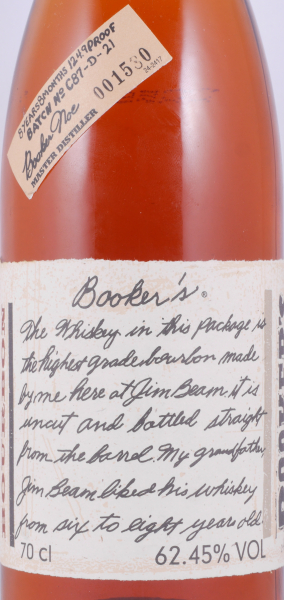 8 YEARS 8 MONTHS 124.9 PROOF
BATCH No C87-D-21
Booker Noe 001530
MASTER DISTILLER
Booker's®
The Whiskey in this package is
the highest grade bourbon made
by me here at Jim Beam it is
uncut and bottled straight
from the barrel. My grandfather,
Jim Beam liked his whiskey
from six to eight years old.
70 cl 62.45% VOL
BOURBON
BOOKER'S